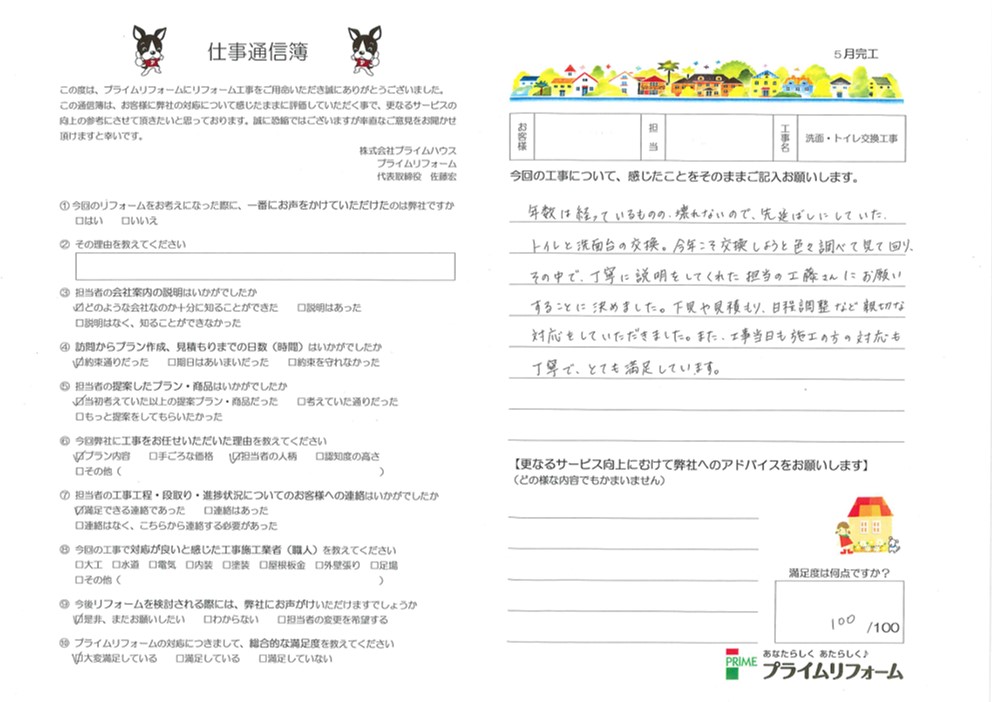 仕事通信簿
この度は、プライムリフォームにリフォーム工事をご用命いただき誠にありがとうございました。
この通信簿は、お客様に弊社の対応について感じたままに評価していただく事で、更なるサービスの
向上の参考にさせて頂きたいと思っております。誠に恐縮ではございますが率直なご意見をお聞かせ
頂けますと幸いです。
株式会社プライムハウス
プライムリフォーム
代表取締役 佐藤宏
①今回のリフォームをお考えになった際に、一番にお声をかけていただけたのは弊社ですか
□はい □いいえ
② その理由を教えてください
③ 担当者の会社案内の説明はいかがでしたか
☑どのような会社なのか十分に知ることができた □説明はあった
□説明はなく、知ることができなかった
④ 訪問からプラン作成、見積もりまでの日数（時間）はいかがでしたか
☑約束通りだった □期日はあいまいだった □約束を守れなかった
⑤ 担当者の提案したプラン・商品はいかがでしたか
☑当初考えていた以上の提案プラン・商品だった □考えていた通りだった
□もっと提案をしてもらいたかった
⑥ 今回弊社に工事をお任せいただいた理由を教えてください
☑プラン内容 □手ごろな価格 ☑担当者の人柄 □認知度の高さ
□その他（ ）
⑦ 担当者の工事工程・段取り・進捗状況についてのお客様への連絡はいかがでしたか
☑満足できる連絡であった □連絡はあった
□連絡はなく、こちらから連絡する必要があった
⑧ 今回の工事で対応が良いと感じた工事施工業者（職人）を教えてください
□大工 □水道 □電気 □内装 □塗装 □屋根板金 □外壁張り □足場
□その他（ ）
⑨ 今後リフォームを検討される際には、弊社にお声がけいただけますでしょうか
☑是非、またお願いしたい □わからない □担当者の変更を希望する
⑩ プライムリフォームの対応につきまして、総合的な満足度を教えてください
☑大変満足している □満足している □満足していない
5月完工
お客様 担当 工事名 洗面・トイレ交換工事
今回の工事について、感じたことをそのままご記入お願いします。
年数は経っているものの、壊れないので、先延ばしにしていた、
トイレと洗面台の交換。今年こそ交換しようと色々調べて見て回り、
その中で、丁寧に説明をしてくれた担当の工藤さんにお願い
することに決めました。下見や見積もり、日程調整など親切な
対応をしていただきました。また、工事当日も施工の方の対応も
丁寧で、とても満足しています。
【更なるサービス向上にむけて弊社へのアドバイスをお願いします】
（どの様な内容でもかまいません）
満足度は何点ですか？
100 /100
PRIME
あなたらしく あたらしく♪
プライムリフォーム